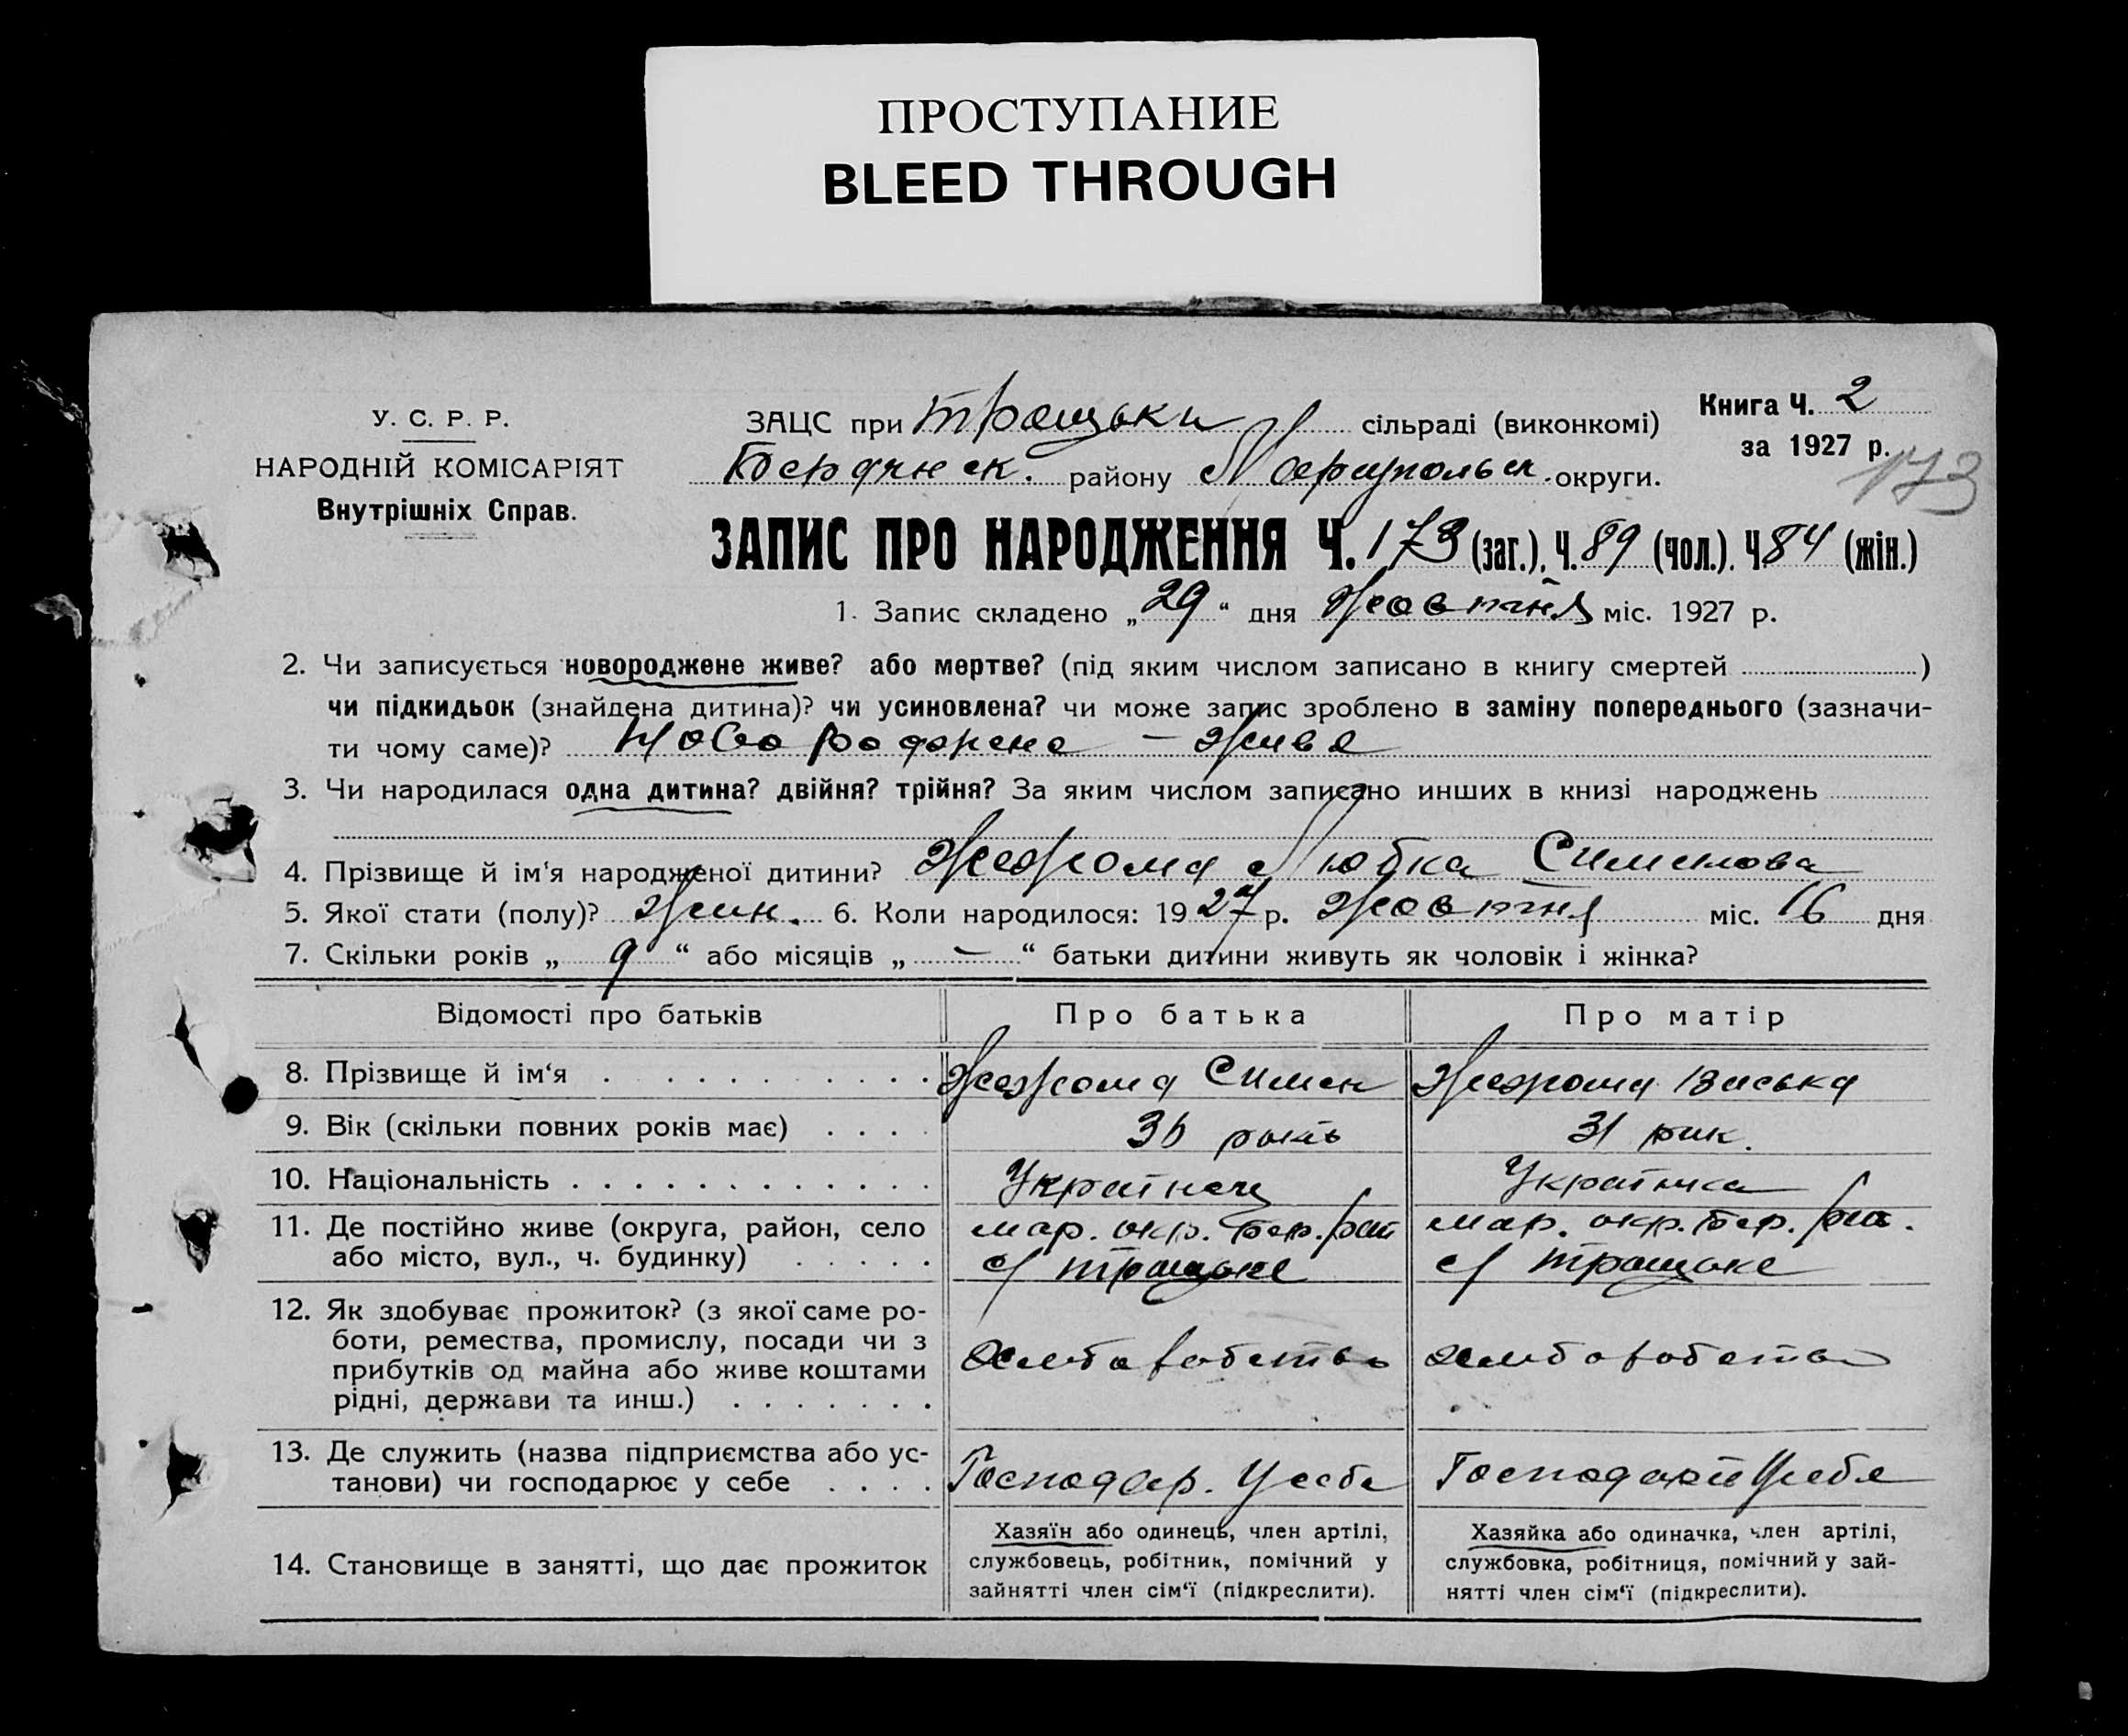 ПРОСТУПАНИЕ
BLEED THROUGH
У. С. Р. Р.
НАРОДНІЙ КОМІСАРІЯТ
Внутрішніх Справ.
ЗАЦС при Троцьки сільраді (виконкомі)
Бердянск. району Маріупольск. округи.
Книга Ч. 2
за 1927 р.
173
ЗАПИС ПРО НАРОДЖЕННЯ Ч. 173 (заг.), Ч. 89 (чол.), Ч 84 (жін.)
1. Запис складено „ 29 “ дня Жовтня міс. 1927 р.
2. Чи записується новороджене живе? або мертве? (під яким числом записано в книгу смертей )
чи підкидьок (знайдена дитина)? чи усиновлена? чи може запис зроблено в заміну попереднього (зазначи-
ти чому саме)? Новороджене – живе
3. Чи народилася одна дитина? двійня? трійня? За яким числом записано инших в книзі народжень
4. Прізвище й ім‘я народженої дитини? Любка Сименова
5. Якої стати (полу)? Жін. 6. Коли народилося: 1927 р. Жовтня міс. 16 дня
7. Скільки років „ 9 “ або місяців „ – “ батьки дитини живуть як чоловік і жінка?
Відомості про батьків Про батька Про матір
8. Прізвище й ім‘я Симен Васька
9. Вік (скільки повних років має) 36 років 31 рик.
10. Національність Українець Українка
11. Де постійно живе (округа, район, село
або місто, вул., ч. будинку)
мар. окр. бер. рай
с/ Троцьке
мар. окр. бер. рай.
с/ Троцьке
12. Як здобуває прожиток? (з якої саме ро-
боти, ремества, промислу, посади чи з
прибутків од майна або живе коштами
рідні, держави та инш.)
хліборобство хліборобство
13. Де служить (назва підприємства або ус-
танови) чи господарює у себе
Господар. У себе Господарст У себе
14. Становище в занятті, що дає прожиток
Хазяїн або одинець, член артілі,
службовець, робітник, помічний у
зайнятті член сім‘ї (підкреслити).
Хазяйка або одиначка, член артілі,
службовка, робітниця, помічний у зай-
нятті член сім‘ї (підкреслити).